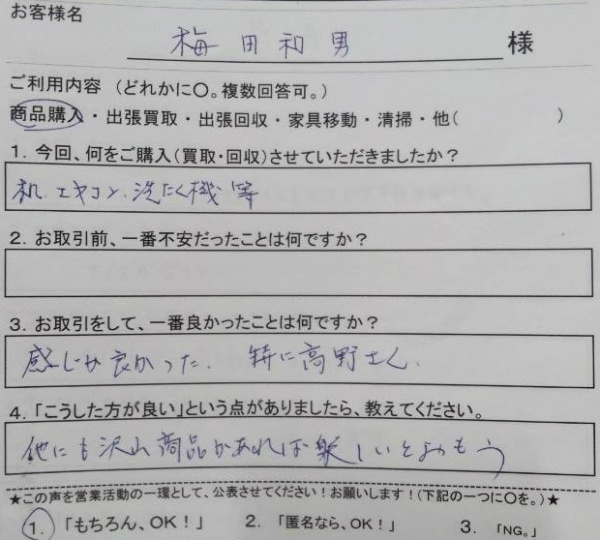 お客様名
梅田和男 様
ご利用内容 (どれかに〇。複数回答可。)
商品購入・出張買取・出張回収・家具移動・清掃・他( )
1. 今回、何をご購入(買取・回収)させていただきましたか?
机、エヤコン、洗たく機等
2. お取引前、一番不安だったことは何ですか?
3. お取引をして、一番良かったことは何ですか?
感じが良かった、特に高野さん、
4.「こうした方が良い」という点がありましたら、教えてください。
他にも沢山商品があれば楽しいとおもう
★この声を営業活動の一環として、公表させてください!お願いします!(下記の一つに〇を。)★
1. 「もちろん、OK!」 2. 「匿名なら、OK!」 3. 「NG。」